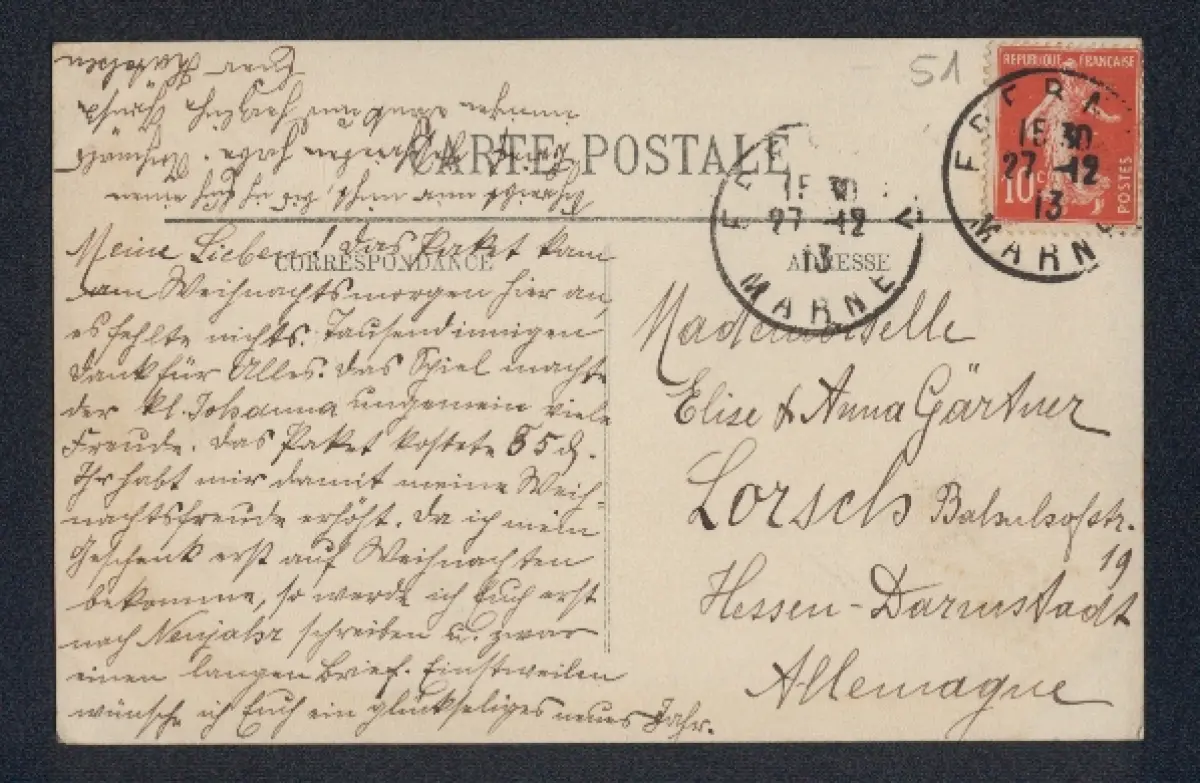 51
REPUBLIQUE FRANÇAISE
10 c
POSTES
CARTE POSTALE
CORRESPONDANCE
ADRESSE
15 30
27 -12
13
MARNE
15 30
27 -12
13
MARNE
Meine Lieben! Das Paket kam
am Weihnachtsmorgen hier an,
es fehlte nichts. Tausend innigen
Dank für Alles. Das Spiel machte
der kl. Johanna ungemein viele
Freude. Das Paket kostete 85 ₰.
Ihr habt mir damit meine Weih-
nachtsfreude erhöht. Da ich mein
Geschenk erst auf Weihnachten
bekomme, so werde ich Euch erst
nach Neujahr schreiben u. zwar
einen langen Brief. Einstweilen
wünsche ich Euch ein glückseliges neues Jahr.
Schreibt mir
Eure
Mademoiselle
Elise & Anna Gärtner
Lorsch Bahnhofstr.
19
Hessen-Darmstadt
Allemagne